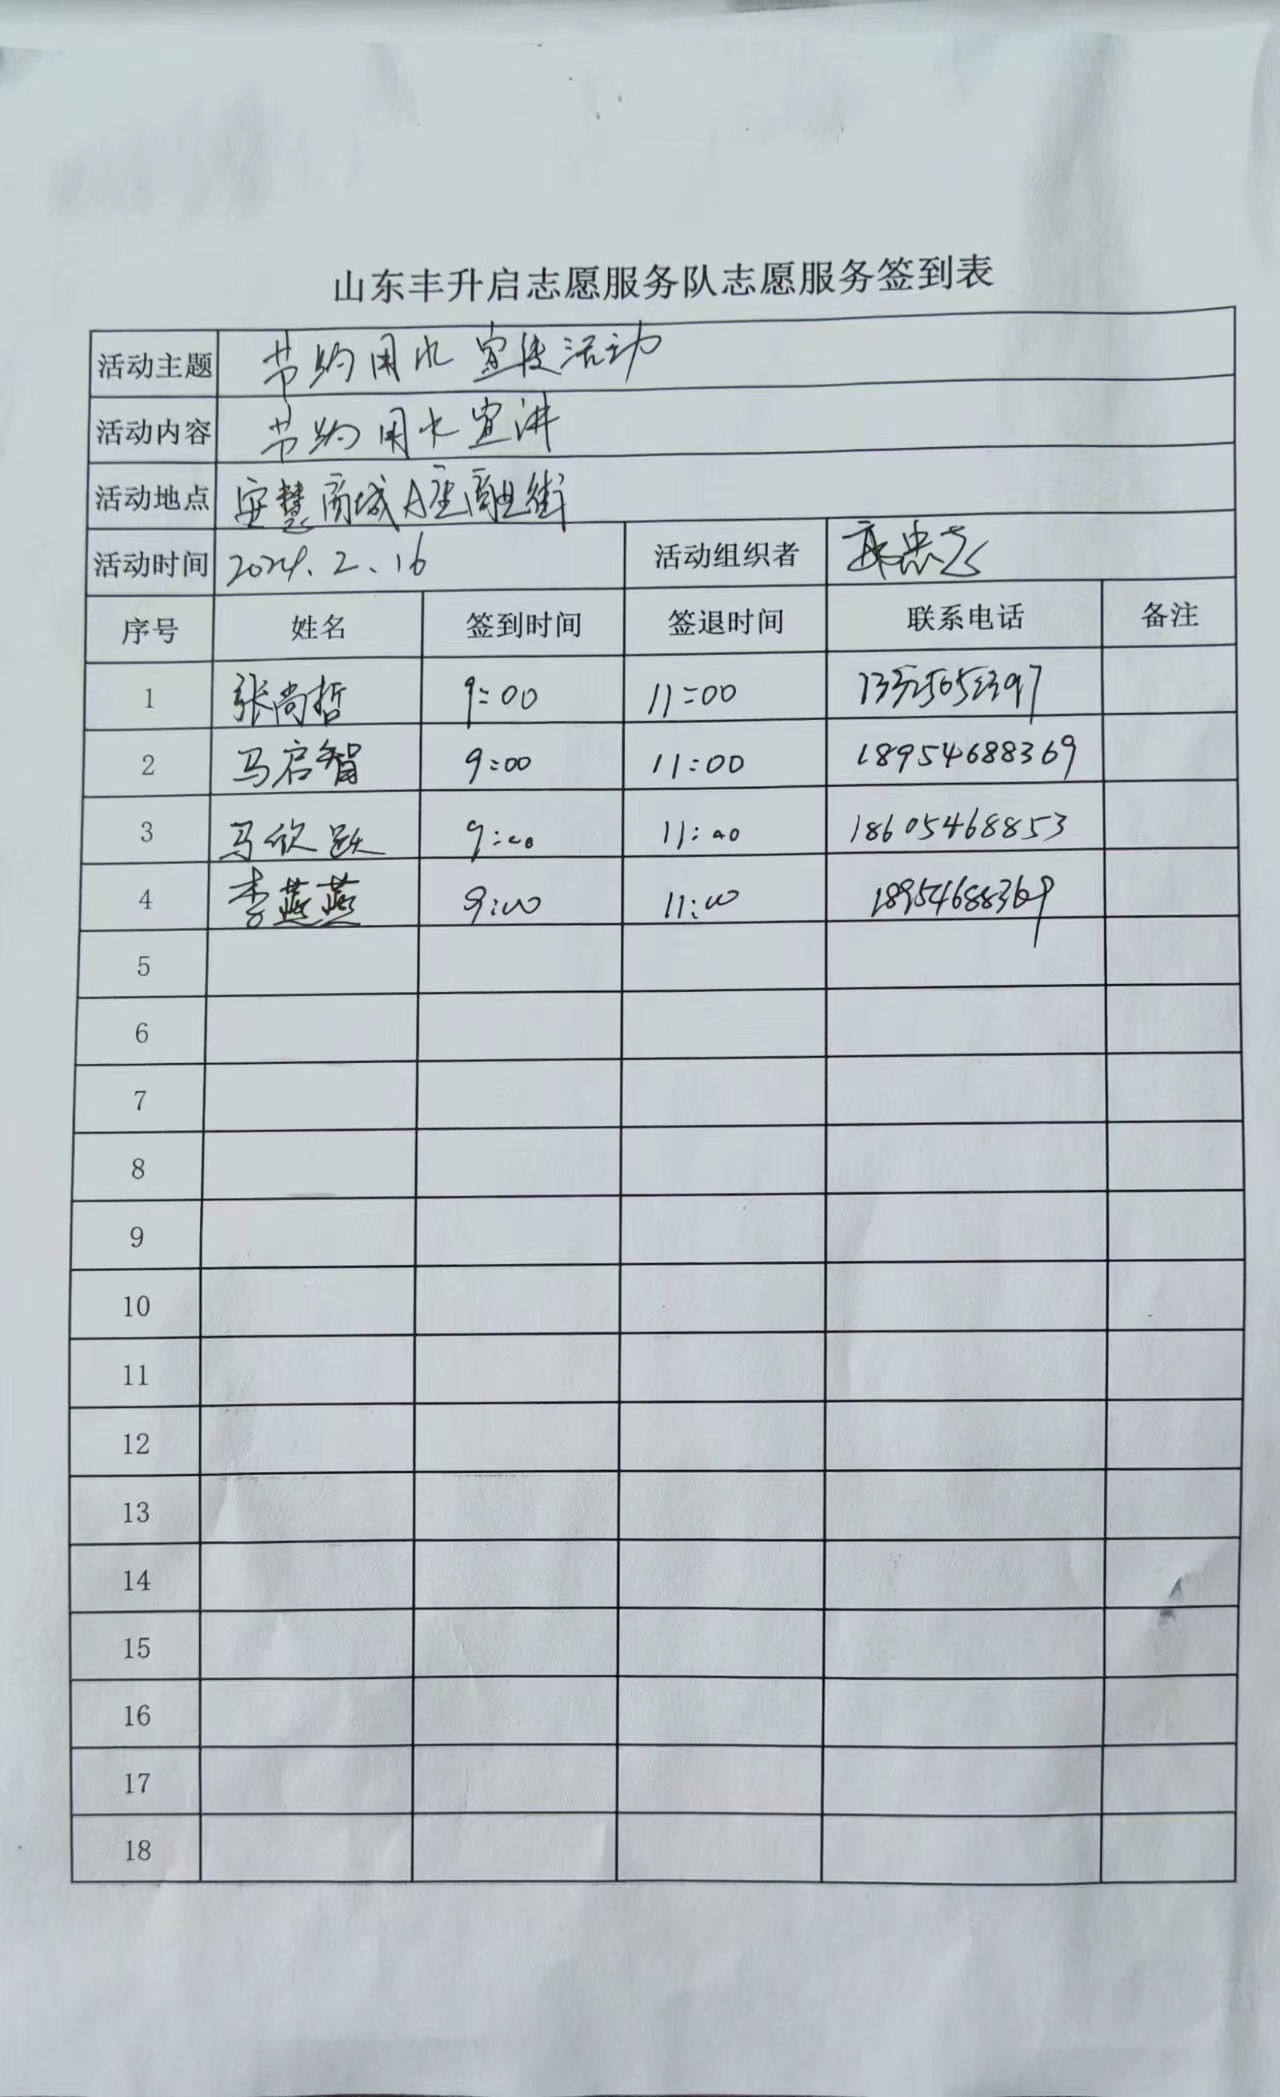 山东丰升启志愿服务队志愿服务签到表
活动主题 节约用水宣传活动
活动内容 节约用水宣讲
活动地点 安慧商城A座商业街
活动时间 2024.2.16 活动组织者
序号 姓名 签到时间 签退时间 联系电话 备注
1 张尚哲 9:00 11:00
2 马启智 9:00 11:00 18954688369
3 马欣跃 9:00 11:00 18605468853
4 李燕燕 9:00 11:00 18954688369
5
6
7
8
9
10
11
12
13
14
15
16
17
18